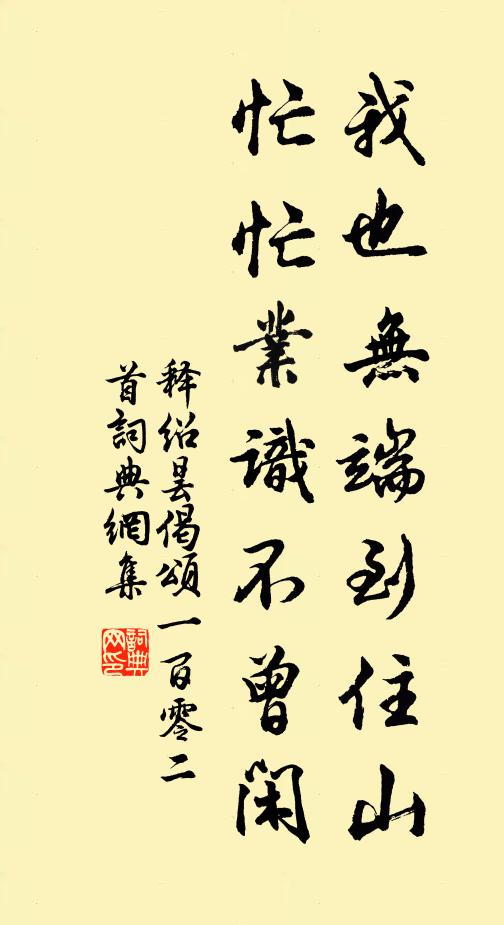 我也無端到住山
忙忙業識不曾閑
释紹曇偈頌一百零二
首詞典網集
詞典网印